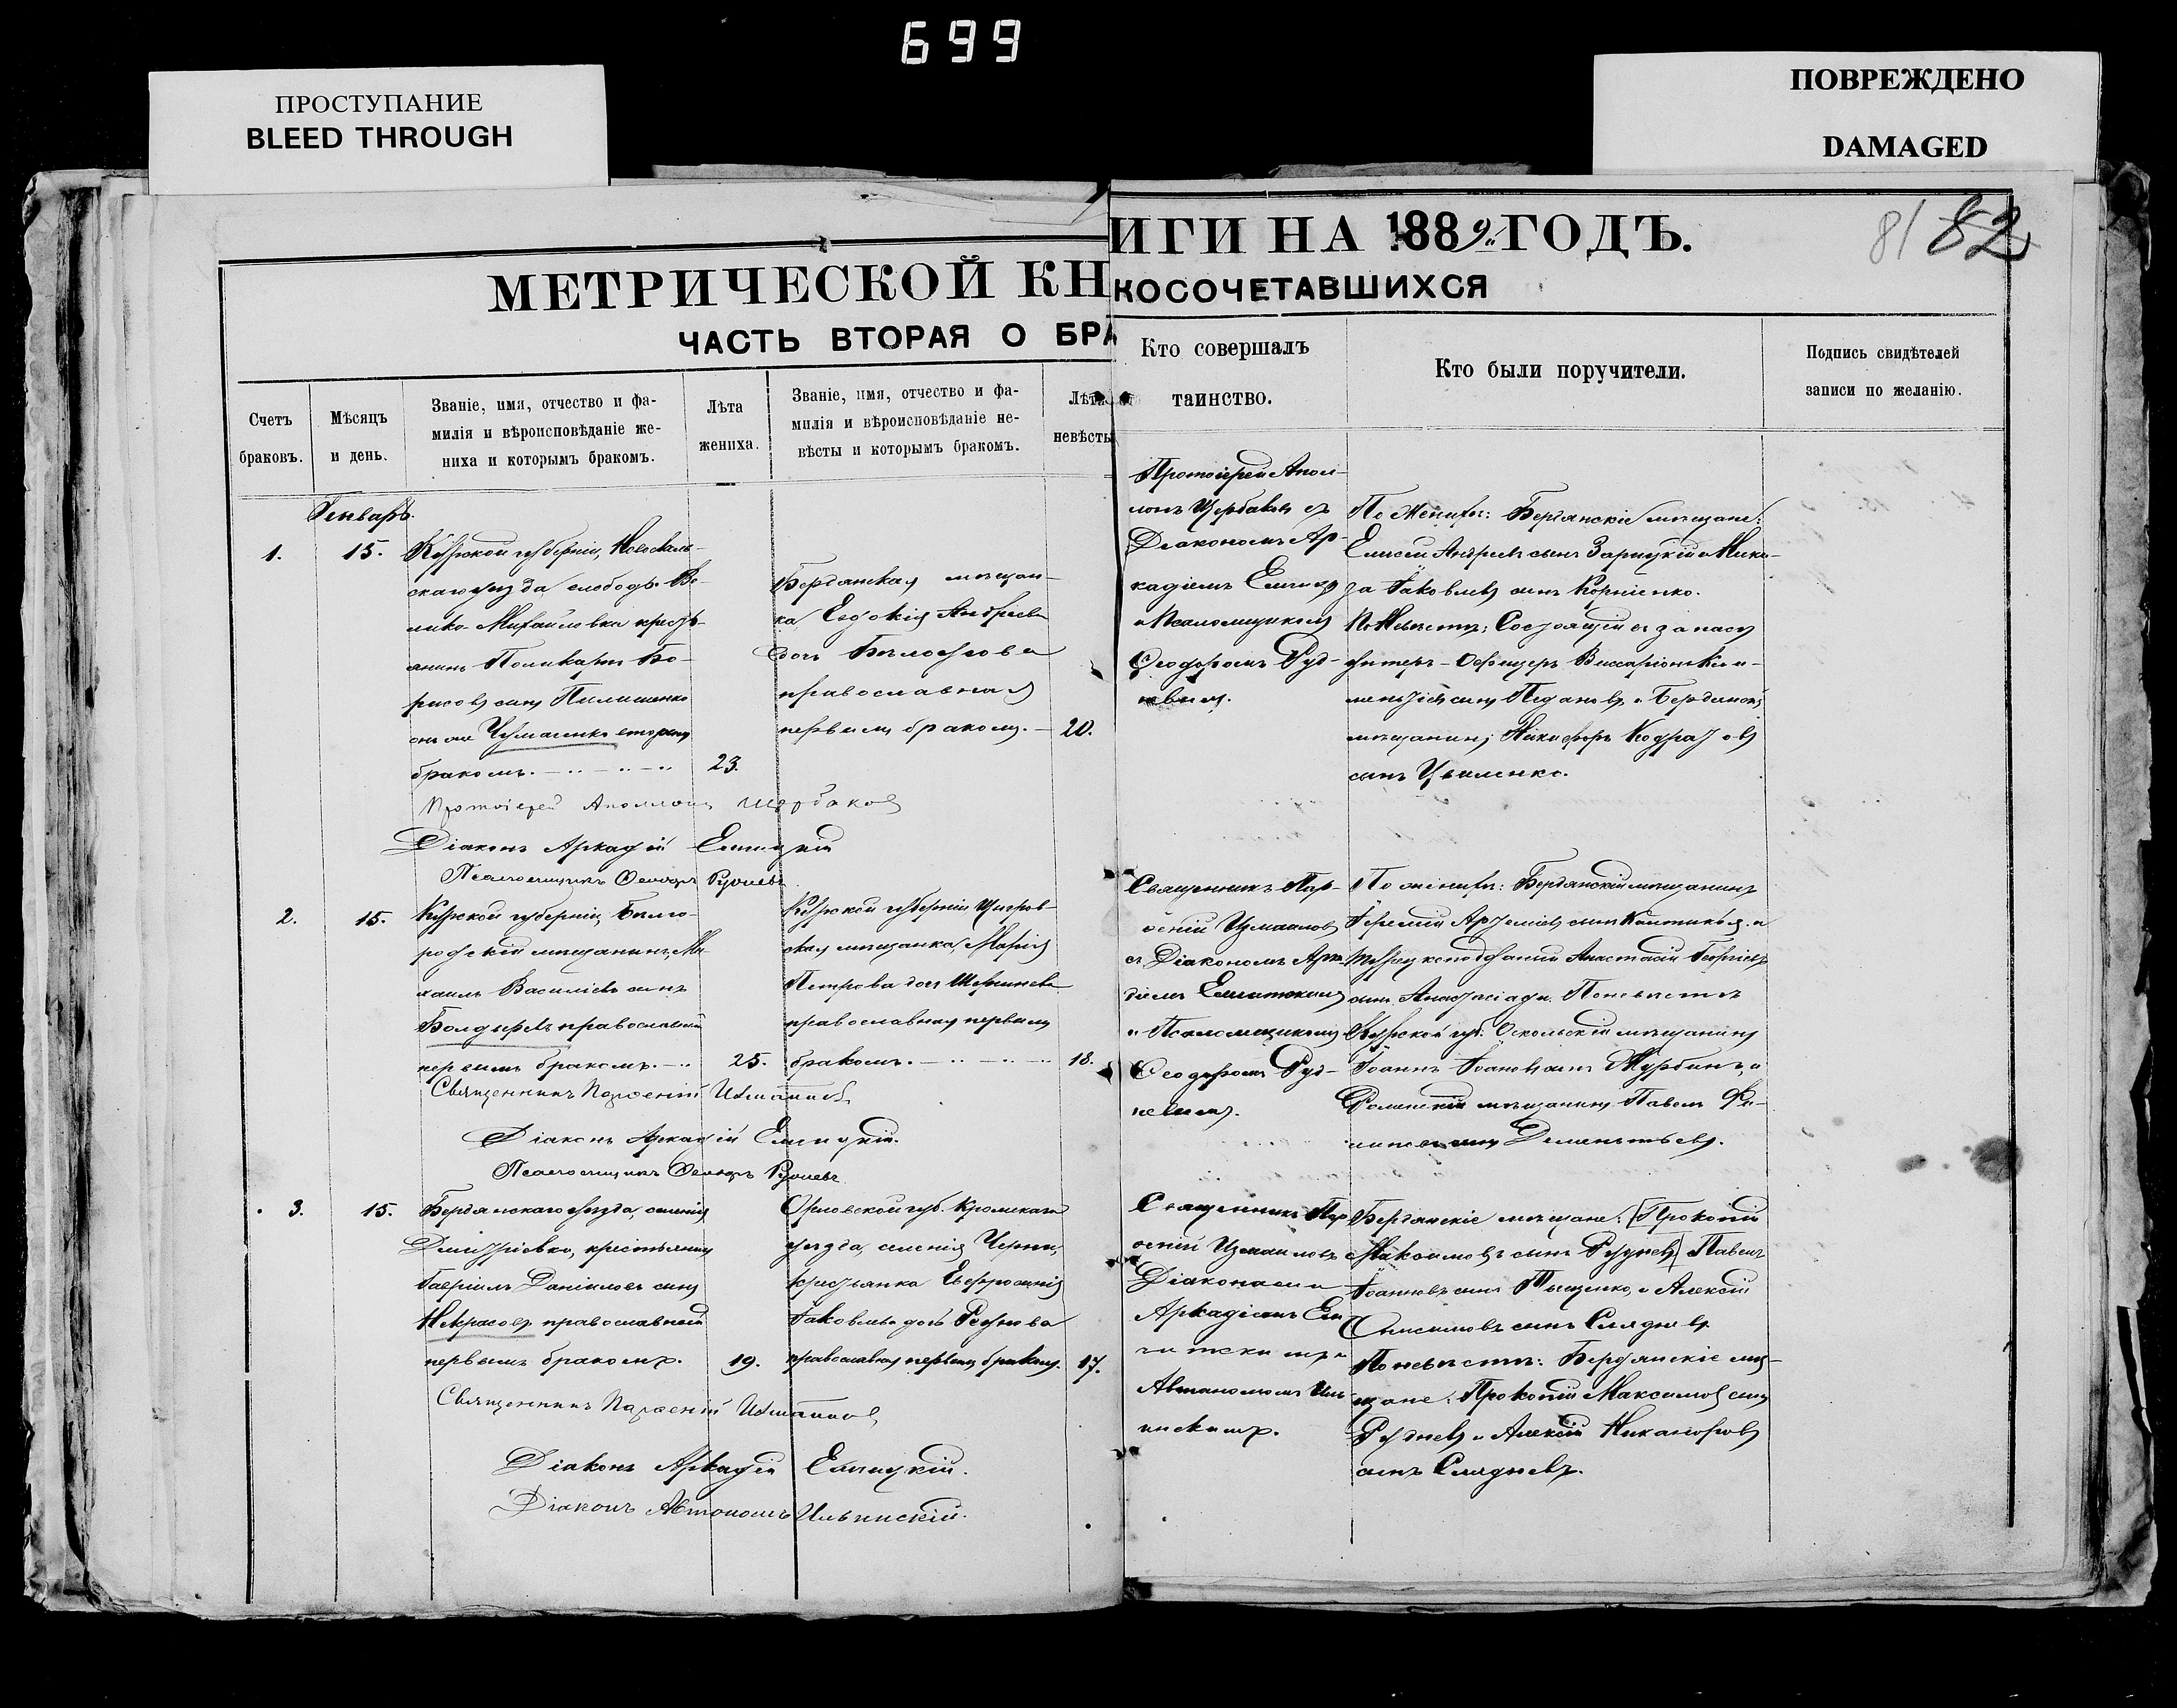 699
ПРОСТУПАНИЕ
BLEED THROUGH
ПОВРЕЖДЕНО
DAMAGED
81 82
МЕТРИЧЕСКОЙ КН
ИГИ НА 1889 ГОДЪ.
ЧАСТЬ ВТОРАЯ О БРА
КОСОЧЕТАВШИХСЯ
Счетъ
браковъ.
Мѣсяцъ
и день.
Званіе, имя, отчество и фа-
милія и вѣроисповѣданіе же-
ниха и которымъ бракомъ.
Лѣта
жениха.
Званіе, имя, отчество и фа-
милія и вѣроисповѣданіе не-
вѣсты и которымъ бракомъ.
Лѣта
невѣсты
Кто совершалъ
таинство.
Кто были поручители.
Подпись свидѣтелей
записи по желанію.
Генварь.
1.
15.
Курской губерніи, Новосколь-
скаго уѣзда слободы Ве-
лико-Михайловки кресть-
янинъ Поликарпъ Бо-
рисовъ сынъ
онъ же вторымъ
бракомъ.
23.
Бердянская мѣщан-
ка Евдокія Андреева
дочь Бѣлоусова
православная
первымъ бракомъ.
20.
Протоіерей Апол-
лонъ Щербаковъ съ
Діакономъ Ар-
кадіемъ
и Псаломщикомъ
Ѳеодоромъ Руд-
невымъ.
По Женихѣ: Бердянскіе мѣщане:
Елисей Андреевъ сынъ Зарицкій и
Іаковлевъ сынъ Корніенко.
По Невѣстѣ: Состоящій въ запасѣ
унтеръ-Офицеръ Виссаріонъ
сынъ и Бердянскій
мѣщанинъ Никифоръ
сынъ
Протоіерей Аполлонъ Щербаковъ
Діаконъ Аркадій
Псаломщикъ Ѳеодоръ Рудневъ
2.
15.
Курской губерніи, Бѣлго-
родскій мѣщанинъ, Ми-
хаилъ Василіевъ сынъ
Болдыревъ православный
первымъ бракомъ.
25.
Курской губерніи Щигров-
ская мѣщанка, Марія
Петрова дочь
православная первымъ
бракомъ.
18.
Священникъ Пар-
ѳеній Измаиловъ
съ Діакономъ Арка-
діемъ
и Псаломщикомъ
Ѳеодоромъ Руд-
невымъ.
По женихѣ: Бердянскій мѣщанинъ
Іеремій Артеміевъ сынъ и
Турецкоподданый Анастасій Георгіевъ
сынъ Анастасіади. По невѣстѣ
Курской губ: Оскольскій мѣщанинъ
Іоаннъ Іоанновъ сынъ и
мѣщанинъ Павелъ Фи-
липовъ сынъ Дементьевъ.
Священникъ Парѳеній Измаиловъ
Діаконъ Аркадій
Псаломщикъ Ѳеодоръ Рудневъ
3.
15.
Бердянскаго уѣзда, селенія
Дмитріевки, крестьянинъ
Гавріилъ Даніиловъ сынъ
Некрасовъ православный
первымъ бракомъ.
19.
Орловской губ. Кромскаго
уѣзда, селенія
крестьянка Евфросинія
Іаковлева дочь Реунова
православная первымъ бракомъ.
17.
Священникъ Пар-
ѳеній Измаиловъ съ
Діаконами
Аркадіемъ
и
Автономомъ Иль-
инскимъ.
Бердянскіе мѣщане: [Прокопій
Максимовъ сынъ Рудневъ] Павелъ
Іоанновъ сынъ Тыщенко, и Алексій
Онисимовъ сынъ Слядневъ.
По невѣстѣ: Бердянскіе мѣ-
щане: Прокопій Максимовъ сынъ
Рудневъ и Алексій Никаноровъ
сынъ Слядневъ.
Священникъ Парѳеній Измаиловъ
Діаконъ Аркадій
Діаконъ Автономъ Ильинскій.